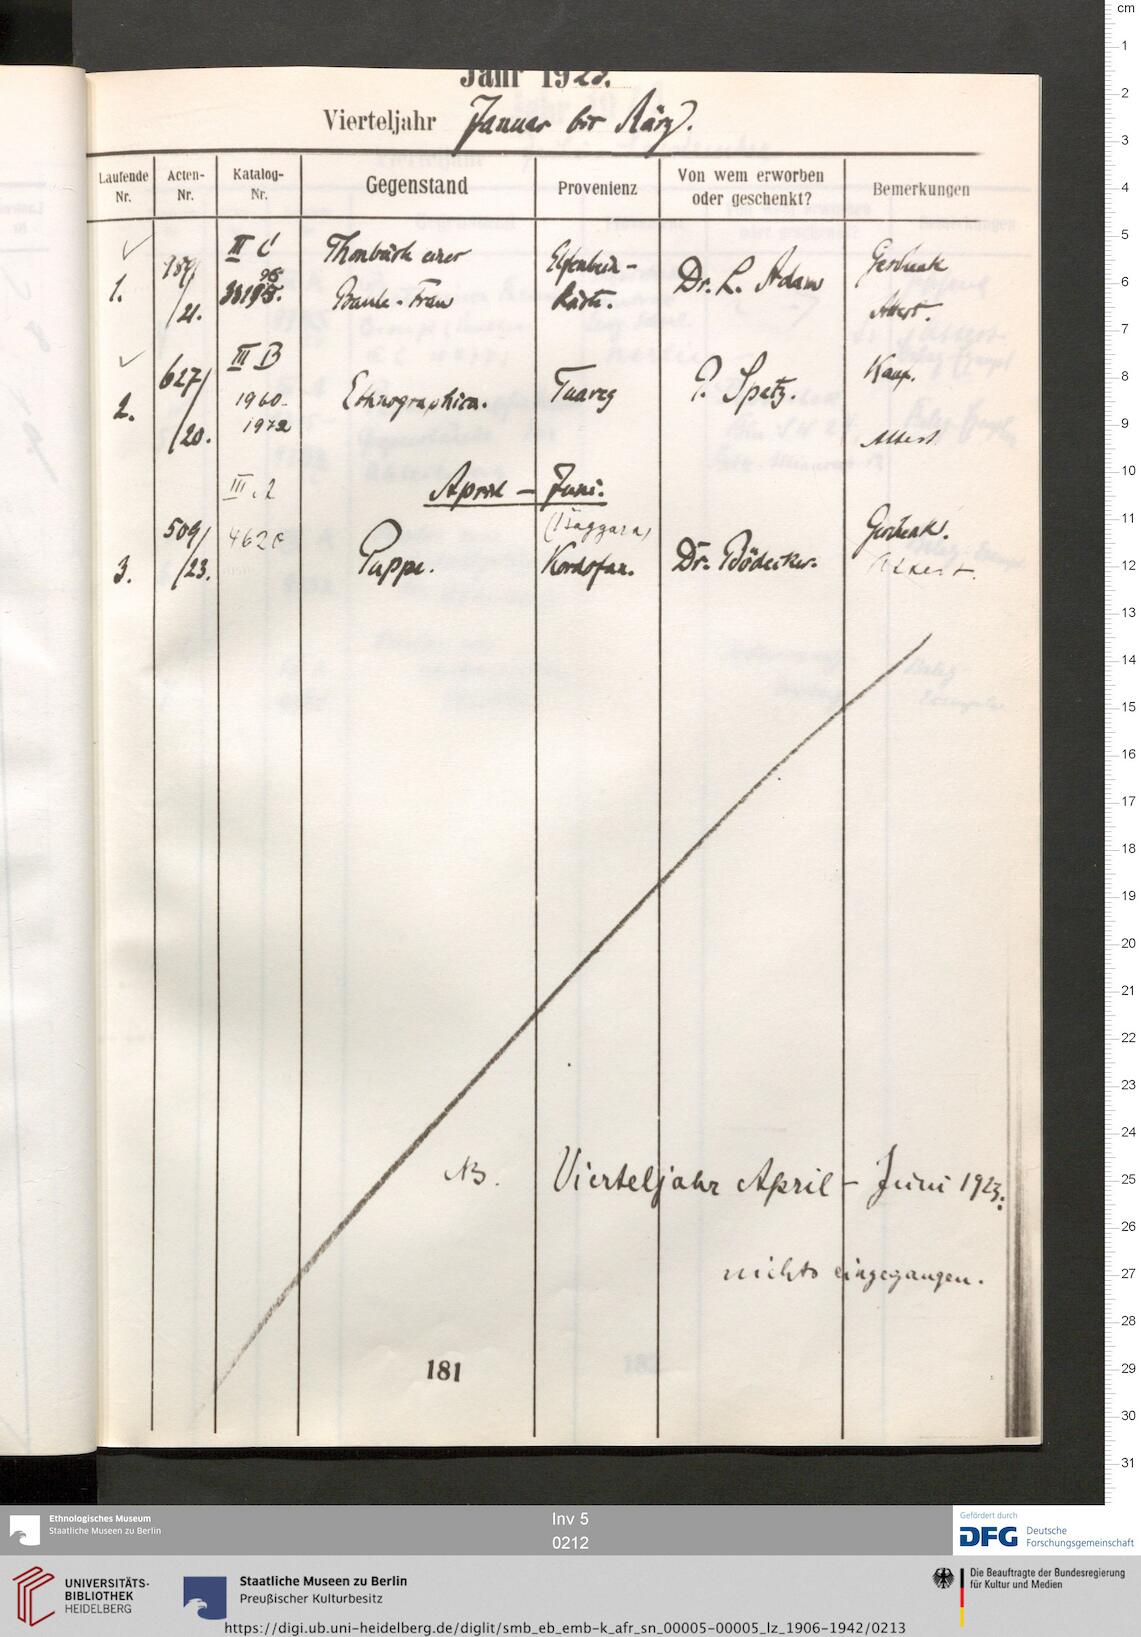 Jahr 1923.
Vierteljahr Januar bis März.
Laufende Nr.
Acten-Nr.
Katalog-Nr.
Gegenstand
Provenienz
Von wem erworben oder geschenkt?
Bemerkungen
1.
/21.
III C
Thonbüste einer
Baule-Frau
Elfenbein-
Küste.
Dr. L. Adam
Geschenk
2.
627/
/20.
III B
1960.
1972
Ethnographica.
Tuareg
P. Spatz.
Kauf.
April - Juni.
3.
509/
/23.
Puppe.
(Baggara)
Kordofan.
Dr. Bödecker.
Geschenk.
NB. Vierteljahr April - Juni 1923:
nichts eingegangen.
181
cm
1
2
3
4
5
6
7
8
9
10
11
12
13
14
15
16
17
18
19
20
21
22
23
24
25
26
27
28
29
30
31
Ethnologisches Museum
Staatliche Museen zu Berlin
Inv 5
0212
Gefördert durch
DFG Deutsche
Forschungsgemeinschaft
UNIVERSITÄTS-
BIBLIOTHEK
HEIDELBERG
Staatliche Museen zu Berlin
Preußischer Kulturbesitz
Die Beauftragte der Bundesregierung
für Kultur und Medien
https://digi.ub.uni-heidelberg.de/diglit/smb_eb_emb-k_afr_sn_00005-00005_lz_1906-1942/0213